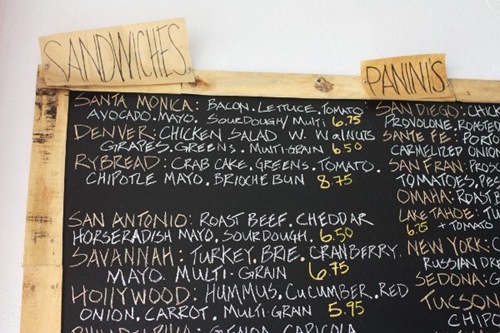 SANDWICHES
SANTA MONICA: BACON. LETTUCE, TOMATO
AVOCADO. MAYO. SOURDOUGH/MULTI 6.75
DENVER: CHICKEN SALAD W. WALNUTS
GRAPES. GREENS. MULTI-GRAIN 6.50
RYBREAD: CRAB CAKE, GREENS. TOMATO.
CHIPOTLE MAYO. BRIOCHE BUN 8.75
SAN ANTONIO: ROAST BEEF. CHEDDAR
HORSERADISH MAYO. SOURDOUGH. 6.50
SAVANNAH: TURKEY. BRIE. CRANBERRY.
MAYO. MULTI-GRAIN 6.75
HOLLYWOOD: HUMMUS. CUCUMBER. RED
ONION. CARROT. MULTI-GRAIN 5.95
PHILADELPHIA:
PANINI'S
SAN DIEGO: CHICK
PROVOLONE. ROASTED
SANTE FE: PORTO
CARMELIZED ONION
SAN FRAN: PROS
TOMATOES, PES
OMAHA: ROAST
LAKE TAHOE: T
6.75 + TOMATO
NEW YORK: C
RUSSIAN DRE
SEDONA:
TUCSON
CHIPOT